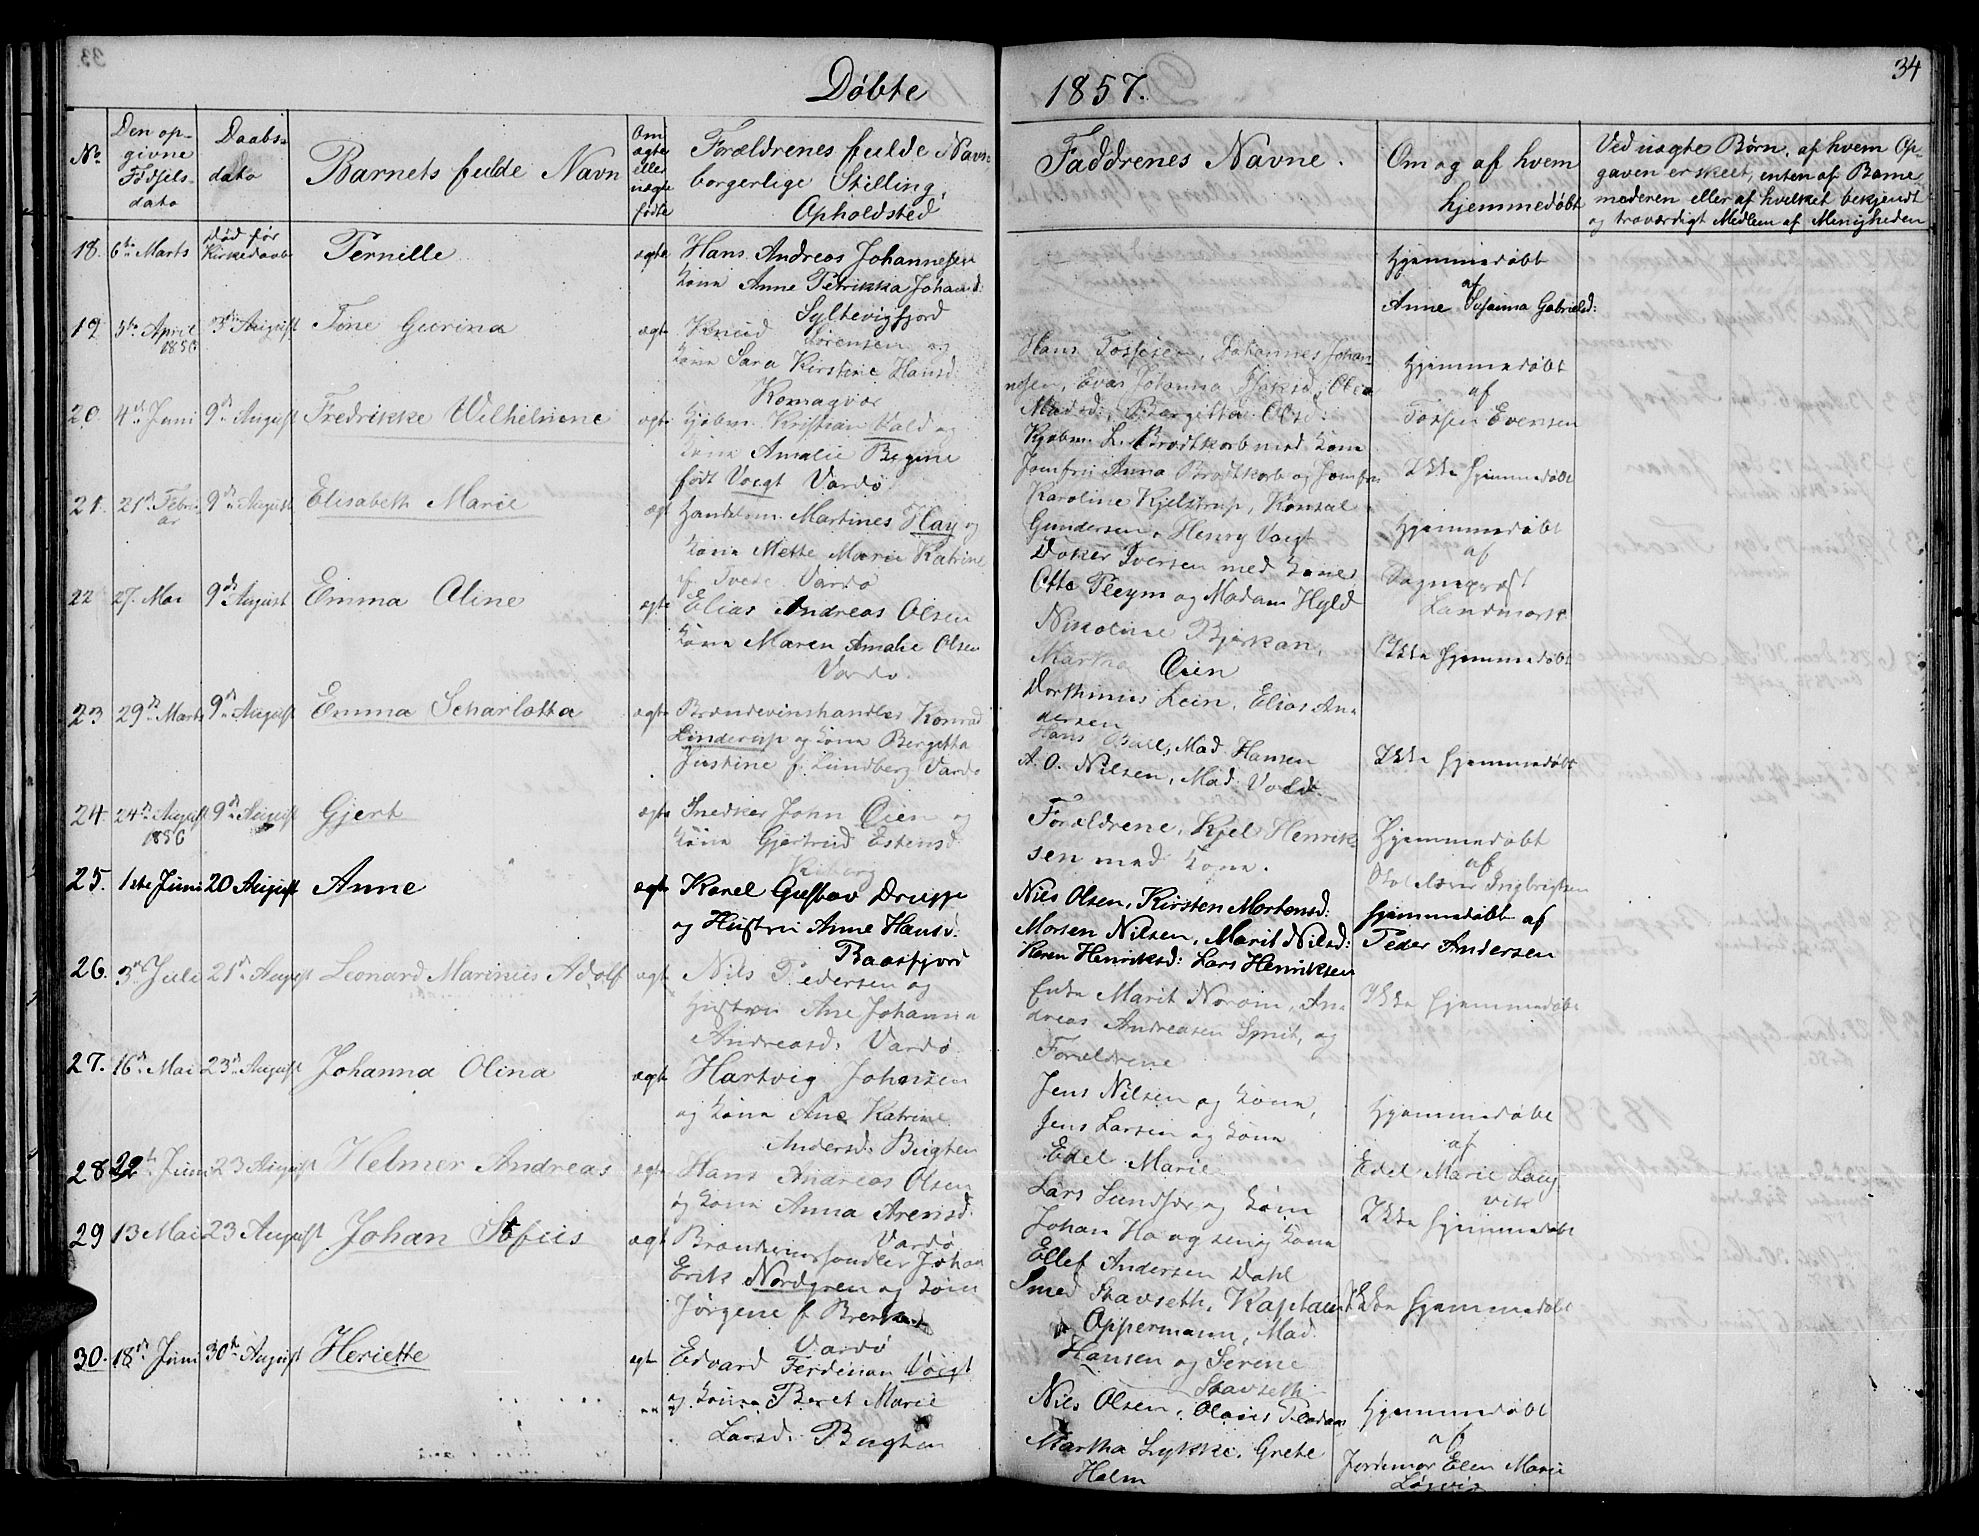 Døbte
1857.
34
No
Den opgivne Fødselsdato
Daabsdato
Barnets fulde Navn
Om ægte eller uægte fødte
Forældrenes fulde Navn borgerlige Stilling, Opholdsted
Faddrenes Navne.
Om og af hvem hjemmedøbt
Ved uægte Børn, af hvem Opgaven er skeet, enten af Barnemoderen eller af hvilket bekjendt og troværdigt Medlem af Menigheden
18. 6te Marts Død før Kirkedaab Pernille ægte
Hans Andreas Johannesen
Kone Anne Petrikka Johansd:
Syltevigfjord
Hjemmedøbt
af
Anne Susanna Gabrielsd:
19. 5te April 1856 3die August Tone Gurina ægt
Knud Sørensen og
Kone Sara Kirstine Hansd:
Komagvær
Hans Tossesen, Johannes Johan-
nesen, Eva Johanna Isaksd, Olea
Madsd:, Bergitta Olsd:
Hjemmedøbt
af
Tossen Evensen
20. 4de Juni 9de August Fredrikke Wilhelmine ægt
Kjøbm. Kristian Vold og
Kone Amalie Regine
født Voigt Vardø
Kjøbm. L. Brodtkorb med Kone
Jomfru Anna Brodtkorb og Jomfru
Karoline Kjelstrup, Konsul
Gundersen, Henry Voigt
Ikke hjemmedøbt
21. 21de Februar 9de August Elisabeth Marie ægt
Handelsm. Martines Hay og
Kone Mette Marie Katrine
f. Tvede Vardø
Doker Iversen med Kone
Otto Pleym og Madam Hyld
Hjemmedøbt
af
Sognepræst
Landmark
22 27. Mai 9de August Emma Oline ægte
Elias Andreas Olsen
Kone Maren Amalie Olsen
Vardø.
Nikoline Bjørkan,
Martha Øien
Dorthinius Lein, Elias An-
dersen
Ikke hjemmedøbt
23 29de Marts 9de August Emma Scharlotta ægte
Brændevinshandler Konrad
Linderup og Kone Bergitta
Justine f. Lundberg Vardø
Hans Bull, Mad. Hansen
A. O. Nilsen, Mad. Vold.
Ikke hjemmedøbt
24. 24de August 1856 9de August Gjert ægte
Snedker John Øien og
Kone Gjertrud Estensd.
Kiberg
Forældrene, Kjel Henrik-
sen med Kone.
Hjemmedøbt
af
Skolelærer Ingbrigtsen
25. 1ste Juni 20 August Anne ægte
Karel Gustav Druppe
og Hustru Anne Hansd:
Baasfjord
Nils Olsen, Kirsten Mortensd:
Morten Nilsen, Marit Nilsd:
Karen Henriksd: Lars Henriksen
hjemmedøbt af
Peder Andersen
26. 3de Juli 21de August Leonard Marinius Adolf ægt
Nils Pedersen og
Hustru Ane Johanna
Andreasd: Vardø
Enke Marit Noroin, An-
dreas Andreasen Smit, og
Forældrene
Ikke hjemmedøbt
27. 16de Mai 23de August Johanna Olina ægt
Hartvig Johansen
og Kone Ane Katrine
Andersd: Bugten
Jens Nilsen og Kone,
Jens Larsen og Kone
Edel Marie
Hjemmedøbt
af
Edel Marie Laug
vik
28. 22de Juni 23 August Helmer Andreas ægt
Hans Andreas Olsen
og Kone Anna Arensd.
Vardø
Lars Lund og Kone
Johan og Kone
Ellef Andersen Dahl
Ikke hjemmedøbt
29 13 Mai 23 August Johan Stofus ægt
Johan
Erik Nordgren og Kone
Jørgene f.
Vardø
Smed Stavseth, Kaptain
Oppermann, Mad.
Hansen og Serene
Stavseth
Ikke hjemmedøbt
30. 18de Juni 30te August Heriette ægt
Edvard Ferdinan Voigt
og Kone Beret Marie
Larsd. Bugten
Nils Olsen,
Martha Lykke, Grete
Holm
Hjemmedøbt
af
Jordemor Elen Marie